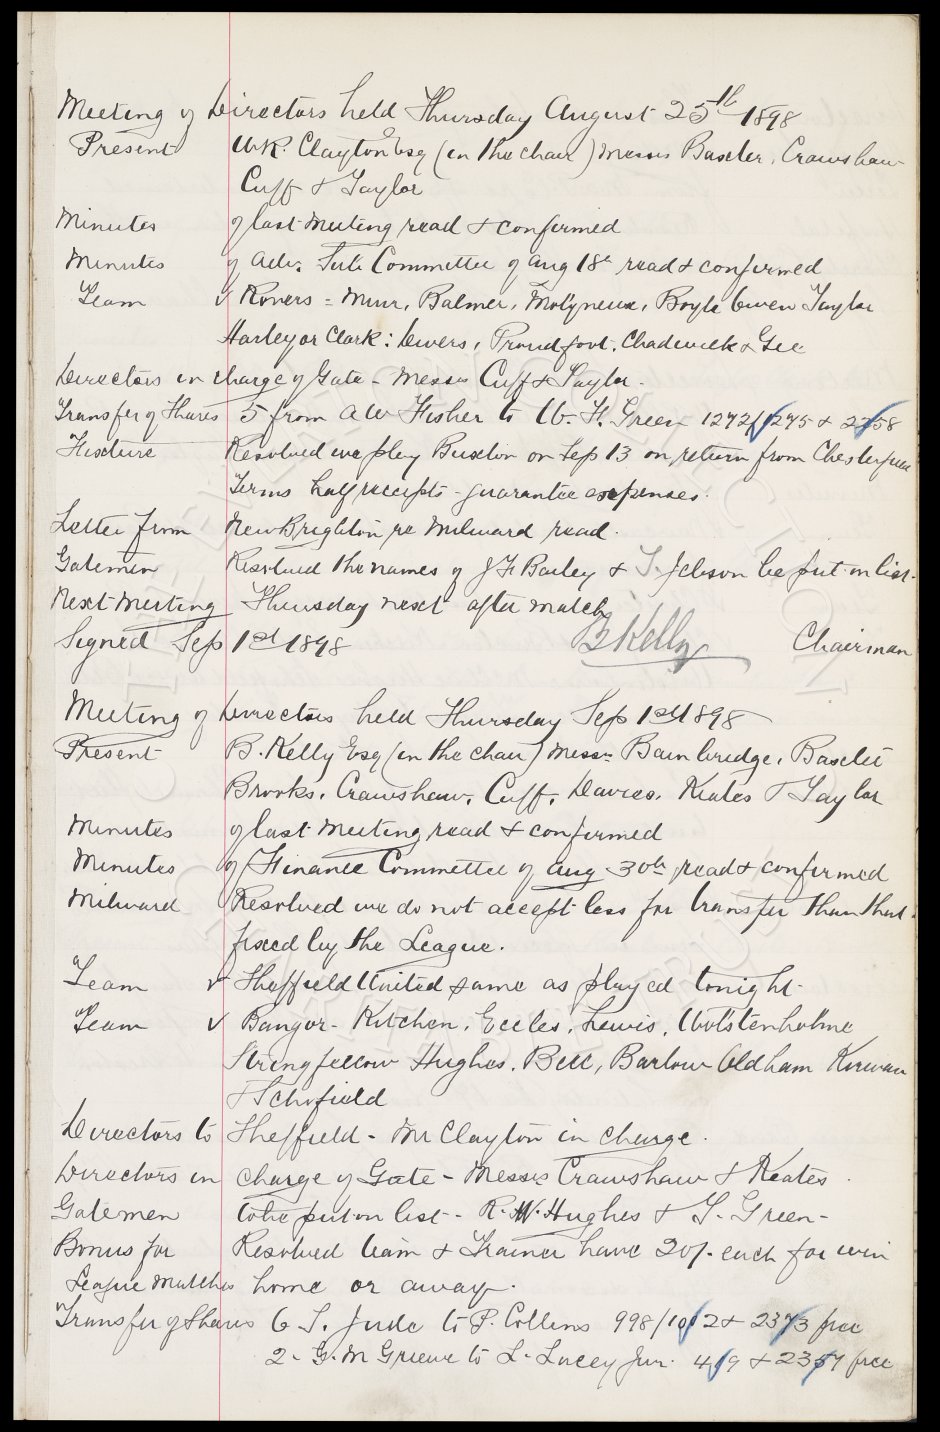 Meeting of Directors held Thursday August 25th 1898
Present W.R. Clayton Esq (in the chair) Messrs Baxter, Crawshaw
Cuff & Taylor
Minutes of last meeting read & confirmed
Minutes of Adv. Sub Committee of Aug 18th read & confirmed
Team v Rovers = Muir, Balmer, Molyneux, Boyle Owen Taylor
Hartley or Clark: Divers, Proudfoot, Chadwick & Gee
Directors in charge of Gate - Messrs Cuff & Taylor.
Transfer of Shares 5 from A W Fisher to W. H. Green 1272/1275 & 2358
Fixture Resolved we play Buxton on Sep 13 on return from Chesterfield
Terms half receipts - guarantee expenses.
Letter from New Brighton re Milward read.
Gatemen Resolved the names of J F Bailey & T. Jebson be put on list.
Next Meeting Thursday next after match
Signed Sep 1st 1898 B Kelly Chairman
Meeting of Directors held Thursday Sep 1st 1898
Present B. Kelly Esq (in the chair) Messrs Bainbridge, Baxter
Brooks, Crawshaw, Cuff, Davies, Keates & Taylor
Minutes of last meeting read & confirmed
Minutes of Finance Committee of Aug 30th read & confirmed
Milward Resolved we do not accept less for transfer than that
fixed by the League.
Team v Sheffield United same as played tonight
Team v Bangor - Kitchen, Eccles, Lewis, Wolstenholme
Stringfellow Hughes, Bell, Barlow Oldham Kirwan
& Schofield
Directors to Sheffield - Mr Clayton in charge.
Directors in charge of Gate - Messrs Crawshaw & Keates.
Gatemen to be put on list - R. W. Hughes & T. Green -
Bonus for Resolved team & Trainer have 20/- each for win
League Matches home or away.
Transfer of Shares 6 T. Jude to P. Collins 998/1002 & 2373 free
2 - G. M Grieve to L. Lucey Jun. 419 & 2357 free